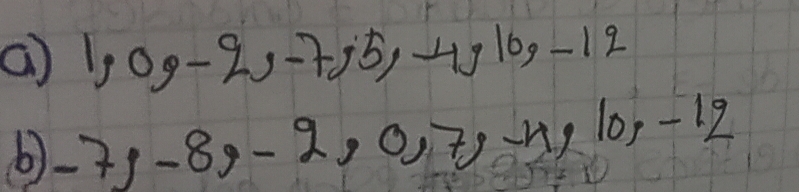 a) 1, 0, -2, -7, 5, -4, 10, -12
b) -7, -8, -2, 0, 7, -4, 10, -12